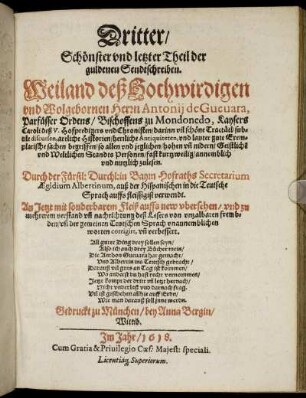 Dritter/
Schönster vnd letzter Theil der
guldenen Sendtschreiben.
Weiland deß Hochwirdigen
vnd Wolgebornen Herrn Antonij de Gueuara,
Parfüsser Ordens/ Bischoffens zu Mondonedo, Kaysers
Caroli deß V. Hofpredigers vnd Chronisten darinn vil schöne Tractätel subtile
discursen, artliche Historien herrliche Antiquiteten, vnd lauter gute Exemplarische
sachen begriffen so allen vnd jeglichen hohen vñ nidern Geistlichs
vnd Weltlichen Standts Personen fast kurtzweilig annemblich
vnd nutzlich zulesen.
Durch der Fürstl: Durchl: in Bayrn Hofraths Secretarium
Ægidium Albertinum, auß der Hispanischen in die Teutsche
Sprach auffs fleissigist verwendt.
An Jetzt mit sonderbarem Fleiß auffs new vbersehen/ vnd zu
mehrerm verstand vñ nachrichtung deß Lesers von vnzalbaren frembden/
vñ der gemeinen Teutschen Sprach vnannemblichen
worten corrigirt, vñ verbessert.
All guter Ding drey sollen seyn/
Also ich auch drey Bücher mein/
Die Anthon Gueuara hat gemacht/
Vnd Albertin ins Teutsch gebracht/
Jetzt kompt der dritt vñ letzt hernach/
Gedruckt zu München/ bey Anna Bergin/
Wittib.
Im Jahr/ 1618.
Cum Gratia & Priuilegio Cæs: Maiest: speciali.
Licentiaq; Superiorum.